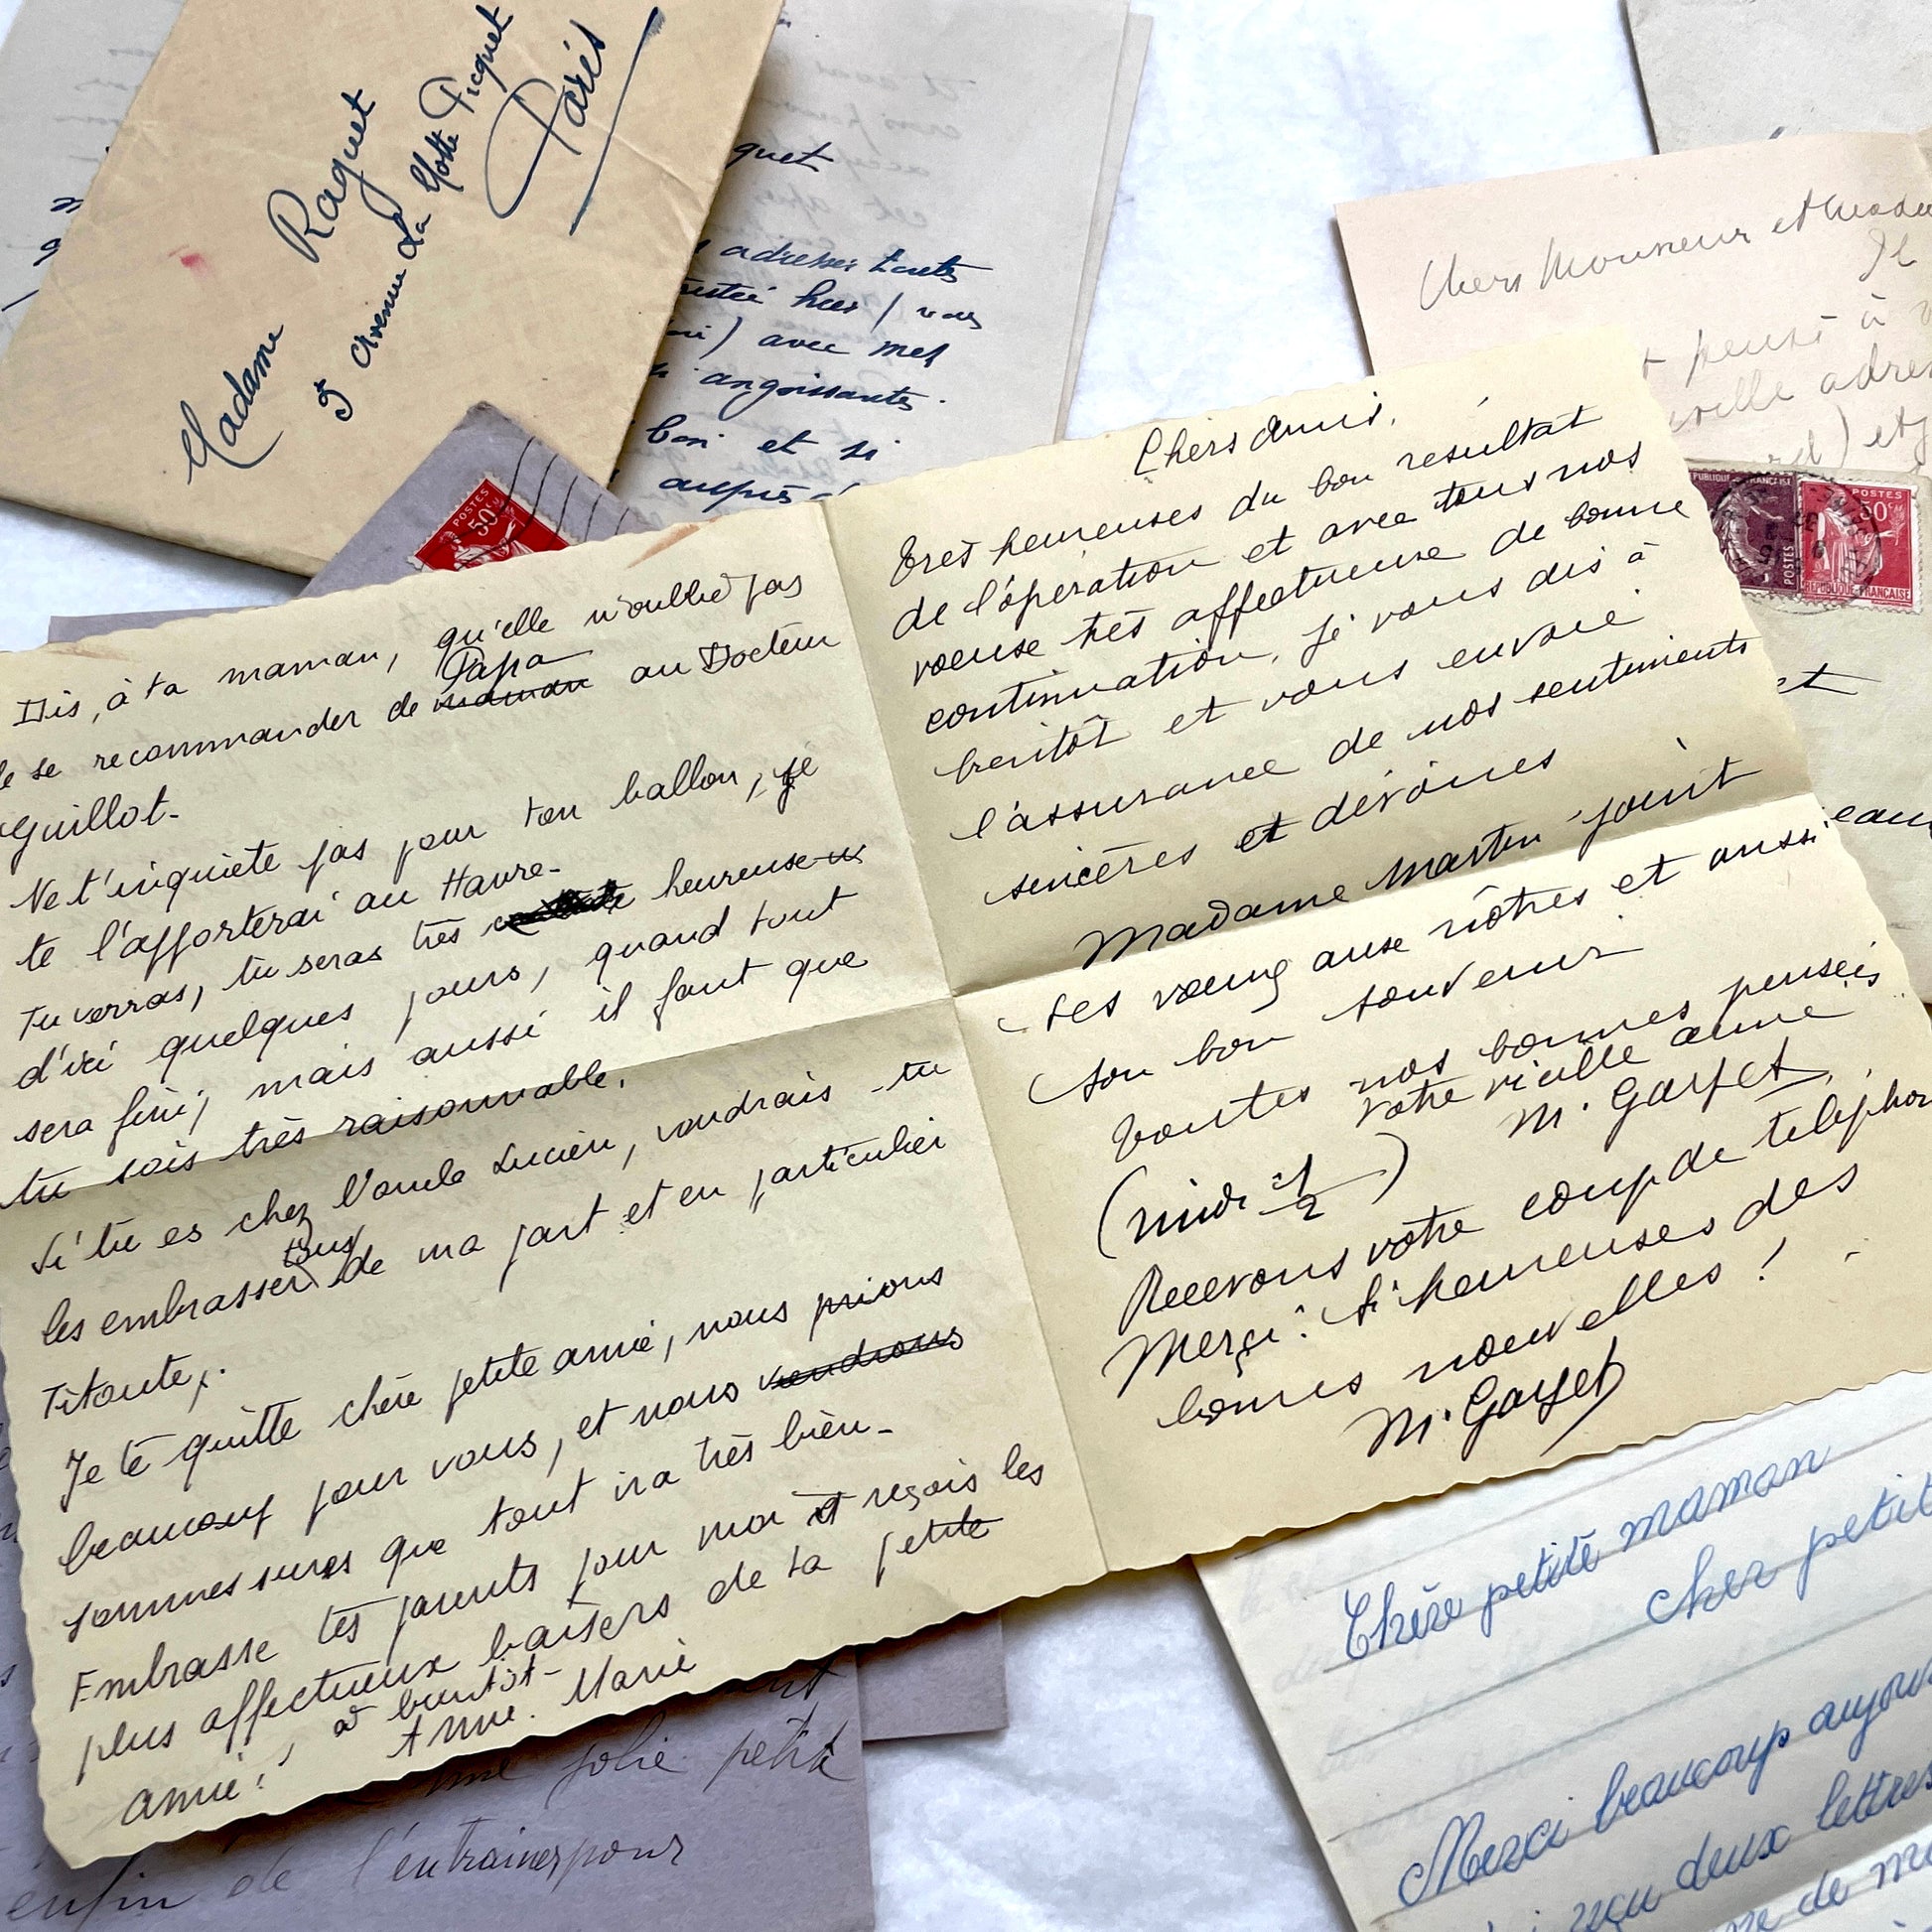 Madame Raquet
3 avenue La Motte Picquet
Paris
quet
adresser toutes
hier / vous
) avec mes
angoissantes.
bon et si
auprès d
POSTES
50c
Chers Monsieur et Mada
Je
pensé à v
velle adres
rd) et
POSTES
POSTES
50c
REPUBLIQUE FRANÇAISE
et
eau
Dis, à ta maman, qu'elle n'oublie pas
de se recommander de maman Papa au Docteur
Guillot.
Ne t'inquiète pas pour ton ballon, je
te l'apporterai au Havre.
Tu verras, tu seras très heureuse
d'ici quelques jours, quand tout
sera fini, mais aussi il faut que
tu sois très raisonnable.
Si tu es chez l'oncle Lucien, voudrais-tu
les embrasser tous de ma part et en particulier
Titoute.
Je te quitte chère petite amie, nous prions
beaucoup pour vous, et nous viendrons
sommes sures que tout ira très bien.
Embrasse tes parents pour moi et reçois les
plus affectueux baisers de ta petite
amie, à bientôt.
Anne. Marie
Chers Amis,
Très heureuses du bon résultat
de l'opération et avec tous nos
voeux très affectueux de bonne
continuation, je vous dis à
bientôt et vous envoie
l'assurance de nos sentiments
sincères et dévoués
Madame Martin joint
ses voeux aux nôtres et aussi
son bon souvenir
Toutes nos bonnes pensées
votre vieille amie
M. Garfet
(midi 1/2)
Recevons votre coup de télépho
Merci! Si heureuses des
bonnes nouvelles!
M. Garfet
jolie petite
enfin de l'entrainer pour
Chère petite maman
cher petit
Merci beaucoup aujour
reçu deux lettres
de m